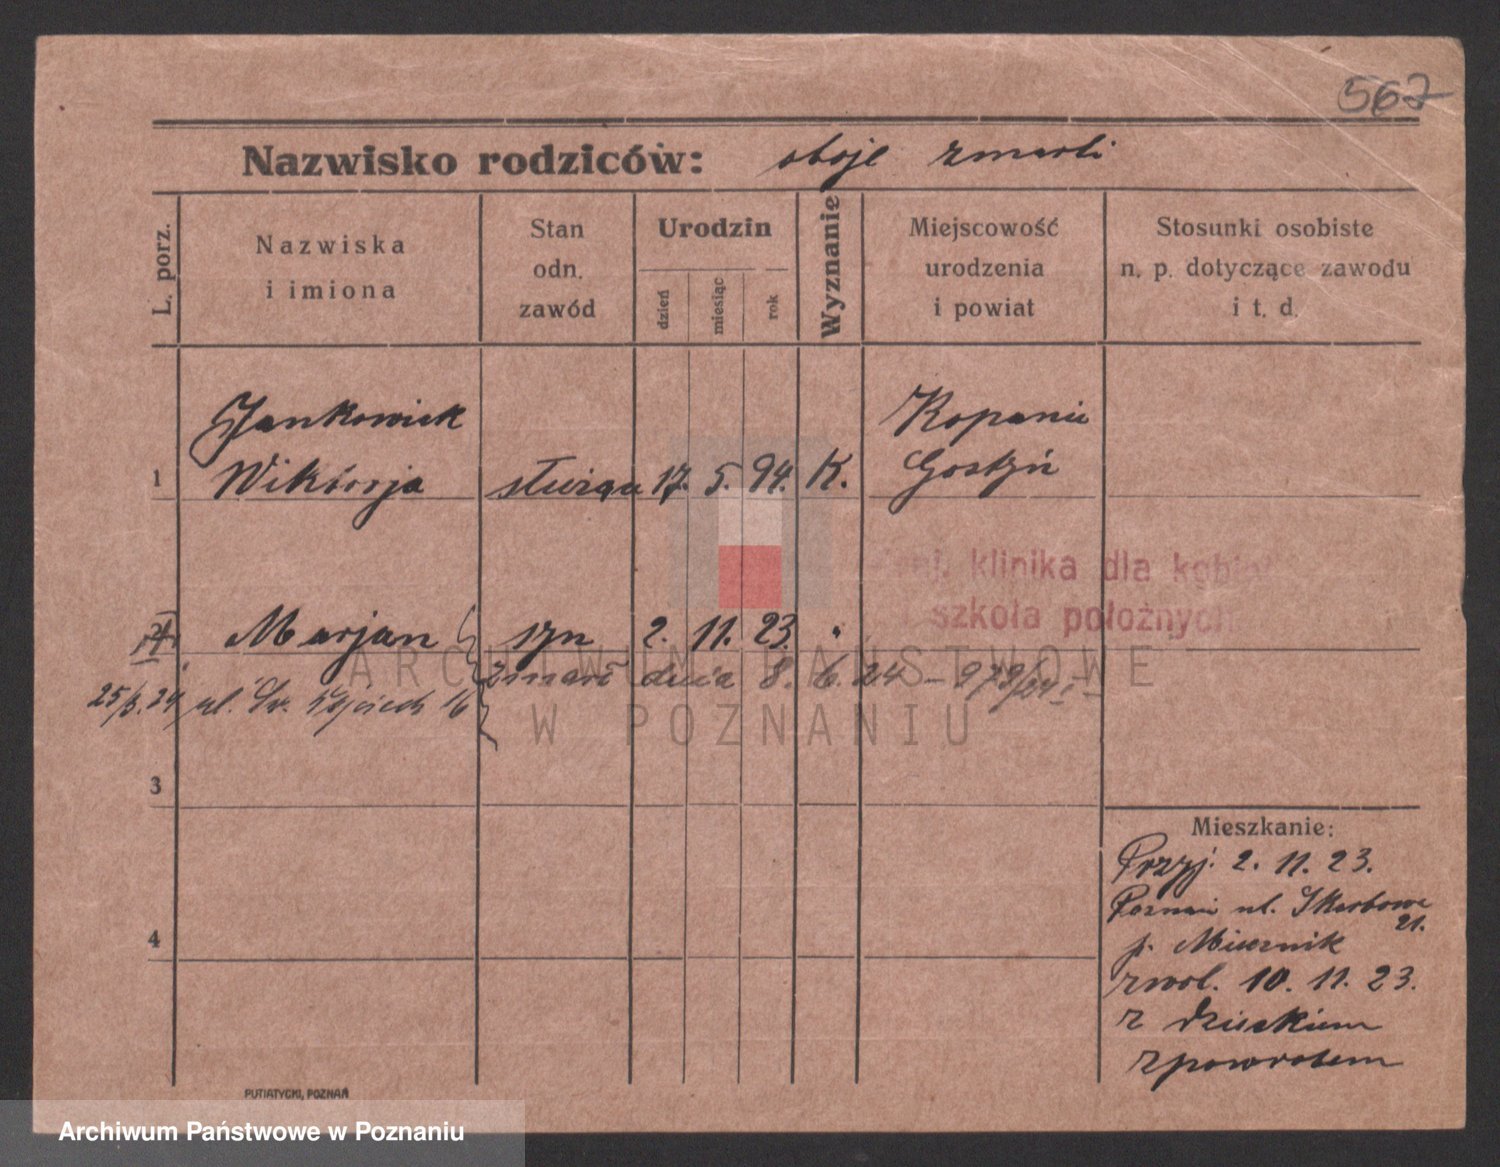 567
Nazwisko rodziców: oboje zmarli
L. porz.
Nazwiska
i imiona
Stan
odn.
zawód
Urodzin
dzień
miesiąc
rok
Wyznanie
Miejscowość
urodzenia
i powiat
Stosunki osobiste
n. p. dotyczące zawodu
i t. d.
Jankowiak Kopanie
1 Wiktorja służąca 17. 5. 94. K. Gostyń
klinika dla kobiet
szkoła położnych
Marjan syn 2. 11. 23. "
zmarł dnia 8. 6. 24 - 979/24
25/3.24 ul. Św. Wojciech 16
ARCHIWUM PAŃSTWOWE
W POZNANIU
3
4
Mieszkanie:
Przyj. 2. 11. 23.
Poznań ul. Skarbowa
21.
p. Miecznik
zwol. 10. 11. 23.
z dzieckiem
zpowrotem
PUTIATYCKI, POZNAŃ
Archiwum Państwowe w Poznaniu